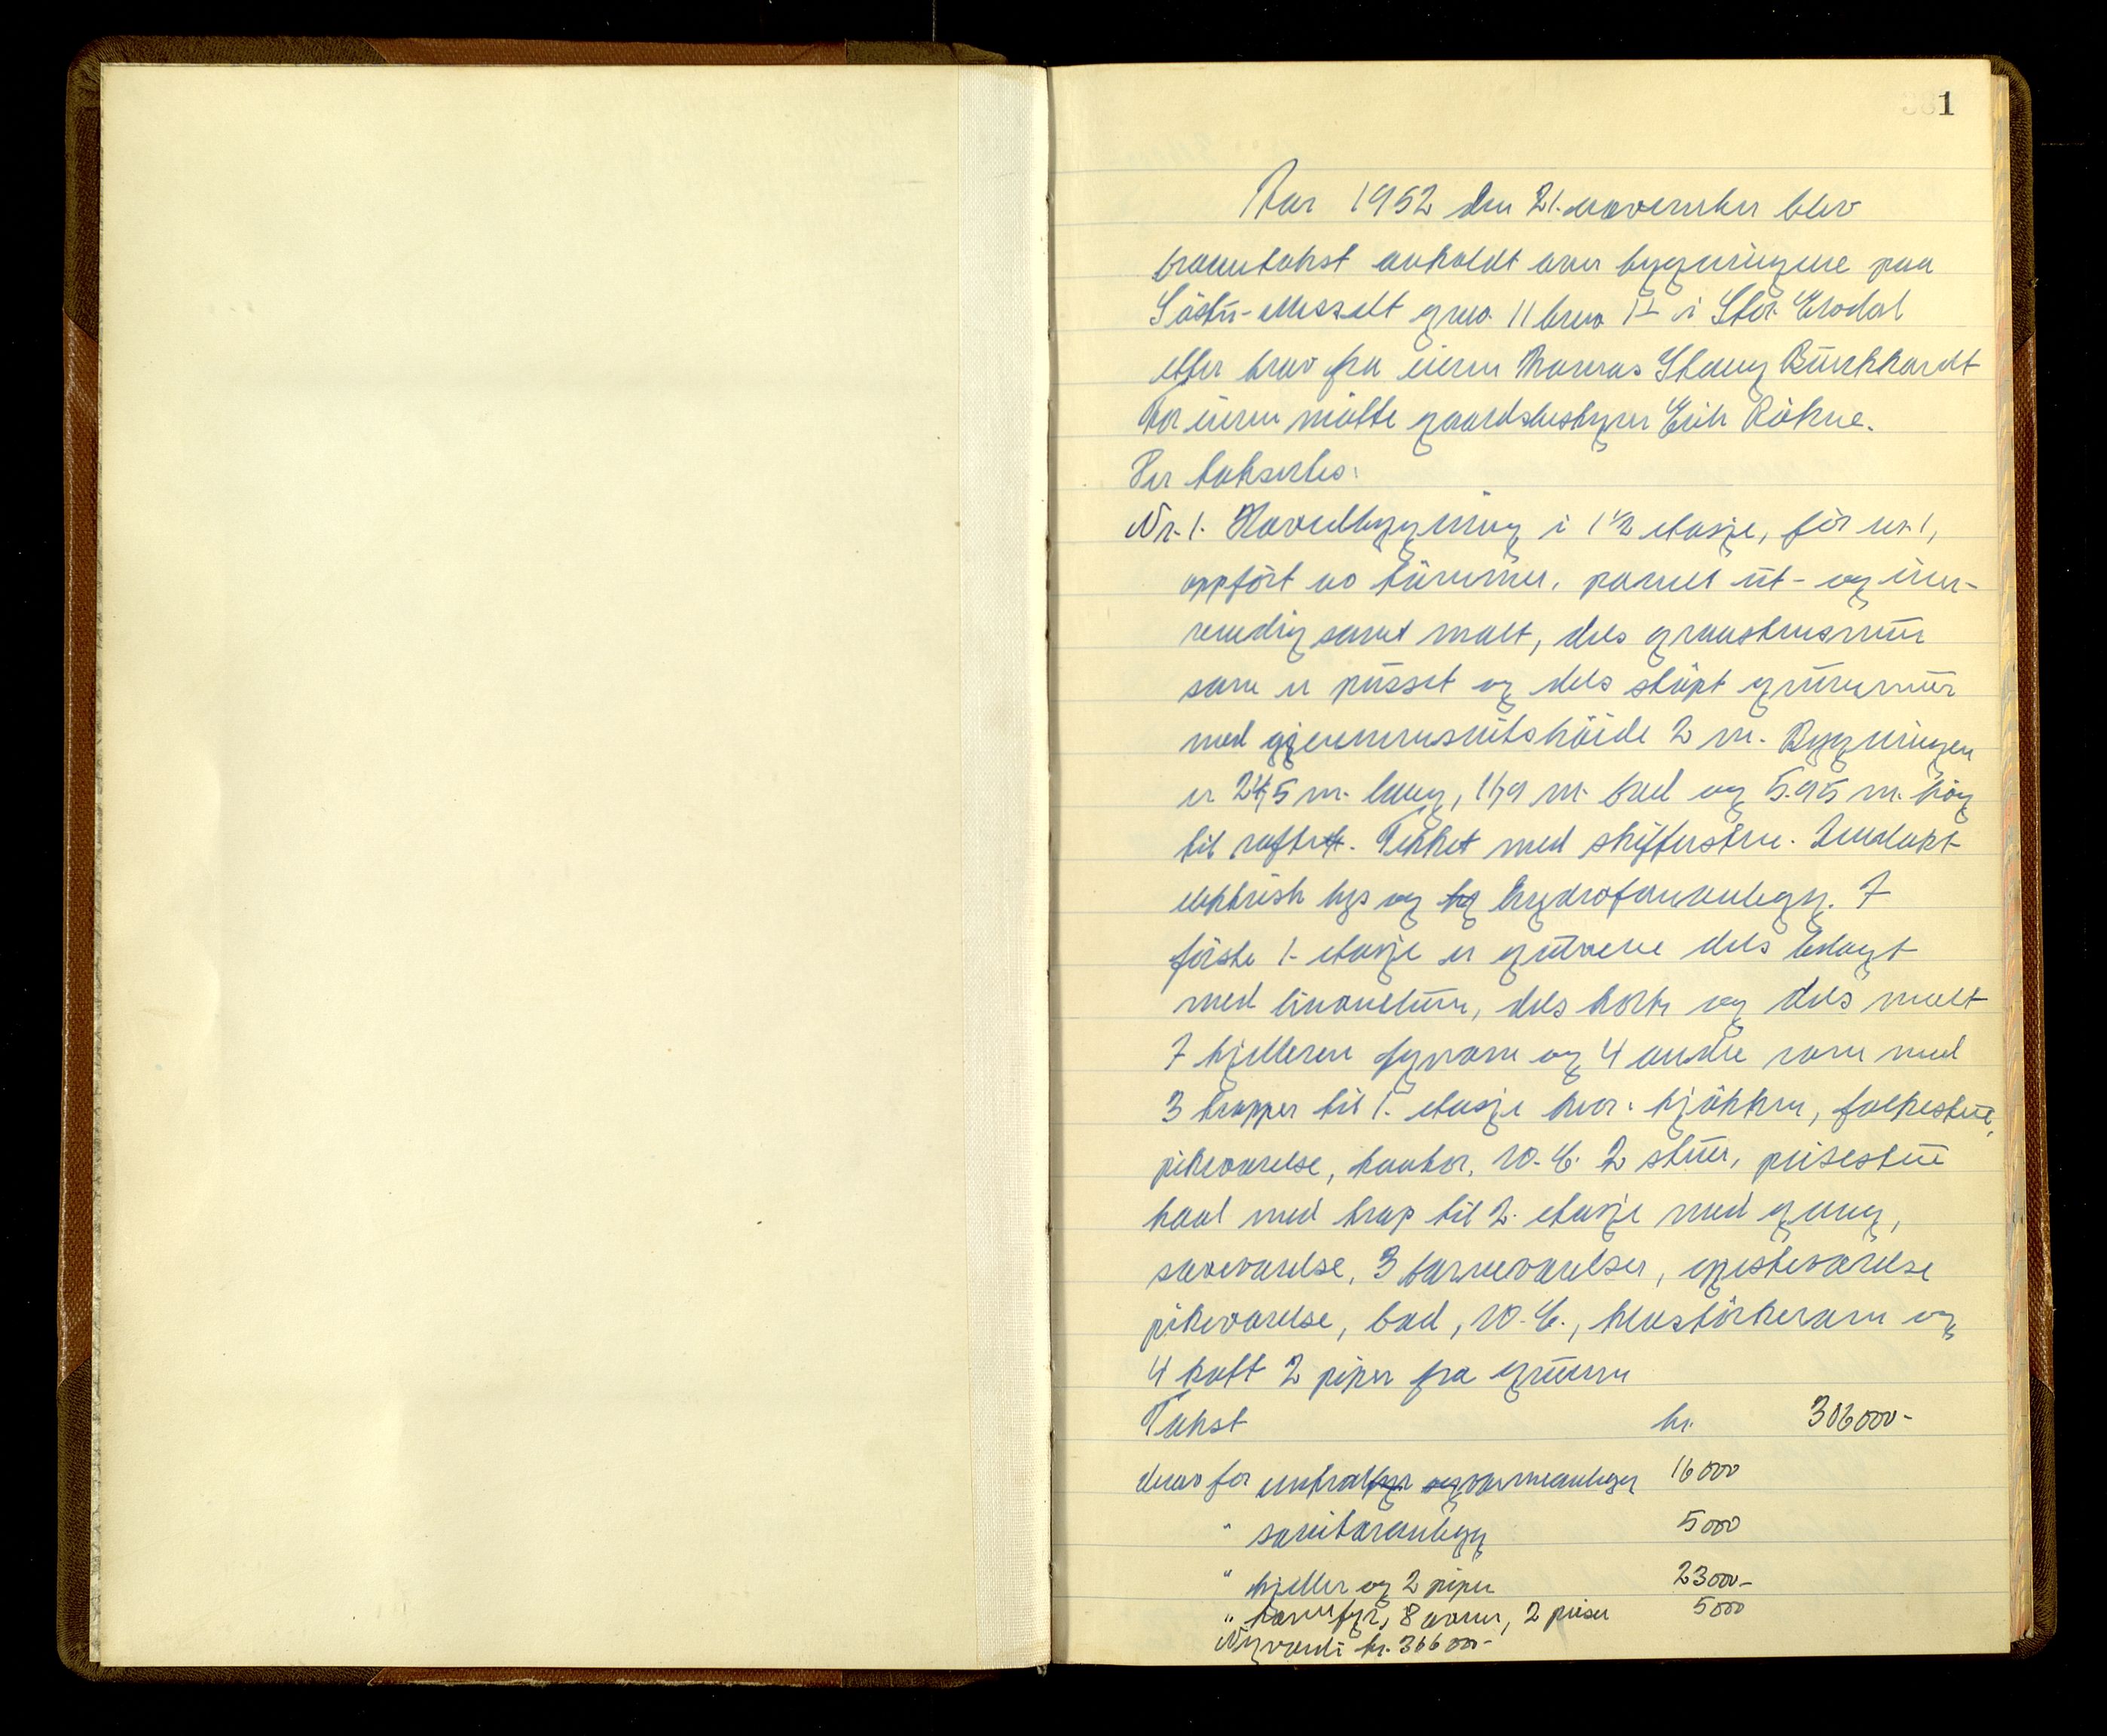 1
Aar 1952 den 21. november blev
branntakst avholdt over bygningene paa
Søstu-Messelt gno. 11 bno 1 i Stor-Elvdal
etter krav fra eieren Thomas Stang Burchhardt
For eieren møtte gaardsbestyrer Erik Røhne.
Her taksertes:
Nr. 1. Hovedbygning i 1 1/2 etasje, før nr. 1,
oppført av tømmer, panelt ut- og inn-
vendig samt malt, dels graastensmur
som er pusset og dels støpt grunnmur
med gjennemsnitshøide 2 m. Bygningen
er 24,5 m. lang, 11,9 m. bred og 5.95 m. høg
til raftet. Tekket med skiffersten. Innlakt
elektrisk lys og hydroforanlegg. I
første 1. etasje er gulvene dels belagt
med linoleum, dels kork og dels malt
I kjelleren fyrrom og 4 andre rom med
3 trapper til 1. etasje hvor: kjøkken, folkestue,
pikeværelse, kontor, W.C. 2 stuer, peisestue
hall med trap til 2. etasje med gang,
soveværelse, 3 barneværelser, gjesteværelse
pikeværelse, bad, W.C., klæstørkerom og
4 kott 2 piper fra grunnen
Takst kr. 306000-
derav for sentralfyr og varmeanlegg 16000
" sanitæranlegg 5000
" kjeller og 2 piper 23000-
" komfyr, 8 ovner, 2 peiser 5000
Nyverdi kr. 366000-